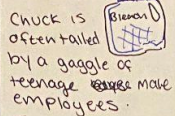 Chuck is
often tailed
by a gaggle of
teenage male
employees.